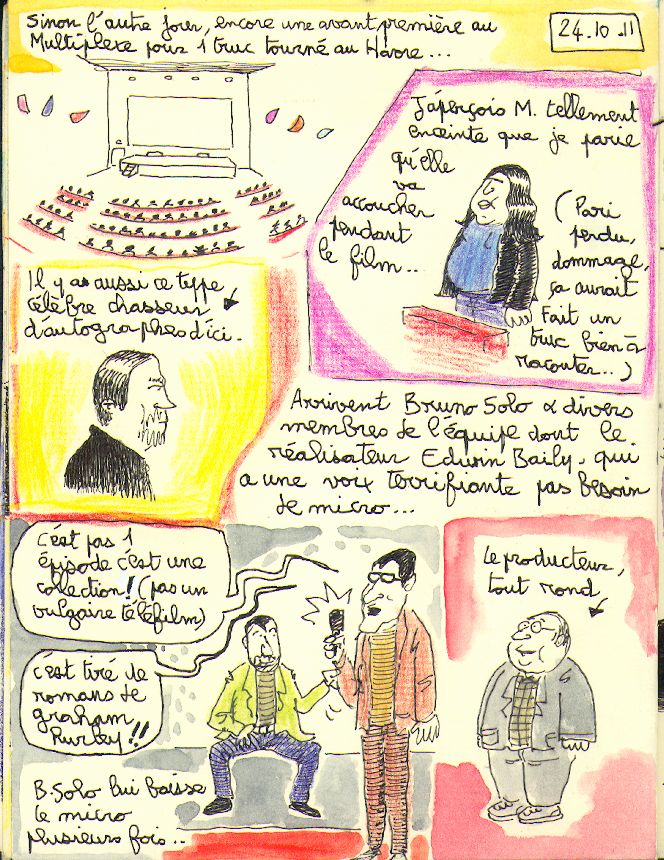 Sinon l'autre jour, encore une avant première au
Multiplexe pour 1 truc tourné au Havre...
24.10.11
J'aperçois M. tellement
enceinte que je parie
qu'elle
va
accoucher
pendant
le film..
(Pari
perdu,
dommage,
ça aurait
fait un
truc bien à
raconter...)
Il y a aussi ce type
célèbre chasseur
d'autographes d'ici.
Arrivent Bruno Solo & divers
membres de l'équipe dont le
réalisateur Edwin Baily, qui
a une voix terrifiante pas besoin
de micro...
C'est pas 1
épisode c'est une
collection! (pas un
vulgaire téléfilm)
C'est tiré de
romans de
graham
Hurley!!
B. Solo lui baisse
le micro
plusieurs fois..
Le producteur,
tout rond